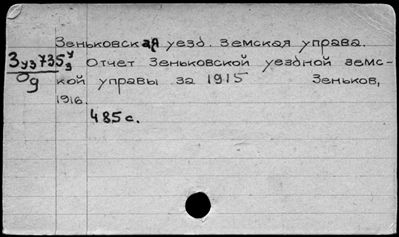 Зеньковская уезд. земская управа.
Отчет Зеньковской уездной земс-
кой управы за 1915 Зеньков,
1916.
485 с.